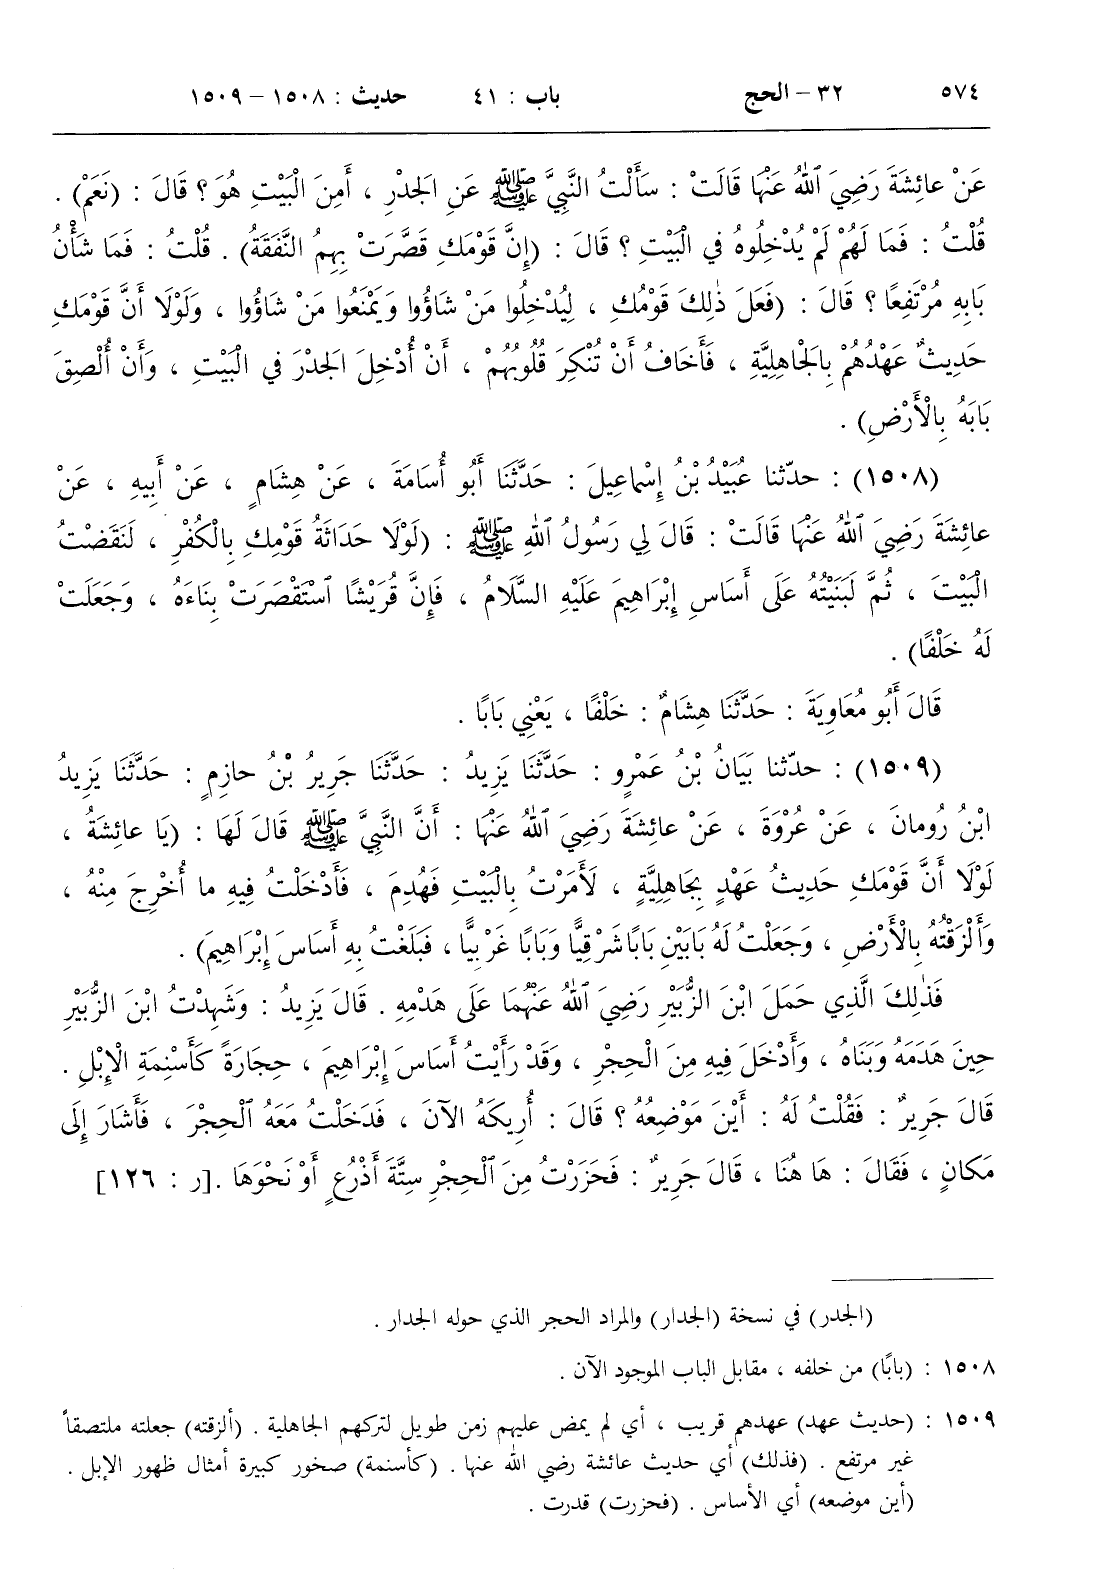 ٥٧٤ ٣٢ – الحج باب : ٤١ حديث : ١٥٠٨ – ١٥٠٩
عَنْ عائِشَةَ رَضِيَ ٱللهُ عَنْهَا قالَتْ : سَأَلْتُ النَّبِيَّ ﷺ عَنِ الجَدْرِ ، أَمِنَ الْبَيْتِ هُوَ ؟ قالَ : (نَعَمْ) .
قُلْتُ : فَمَا لَهُمْ لَمْ يُدْخِلُوهُ في الْبَيْتِ ؟ قالَ : (إِنَّ قَوْمَكِ قَصَّرَتْ بِهِمُ النَّفَقَةُ) . قُلْتُ : فَمَا شَأْنُ
بَابِهِ مُرْتَفِعًا ؟ قالَ : (فَعَلَ ذٰلِكَ قَوْمُكِ ، لِيُدْخِلُوا مَنْ شَاؤُوا وَيَمْنَعُوا مَنْ شَاؤُوا ، وَلَوْلَا أَنَّ قَوْمَكِ
حَدِيثٌ عَهْدُهُمْ بِالجَاهِلِيَّةِ ، فَأَخَافُ أَنْ تُنْكِرَ قُلُوبُهُمْ ، أَنْ أُدْخِلَ الجَدْرَ في الْبَيْتِ ، وَأَنْ أُلْصِقَ
بَابَهُ بِالْأَرْضِ) .
(١٥٠٨) : حدّثنا عُبَيْدُ بْنُ إِسْماعِيلَ : حَدَّثَنَا أَبُو أُسَامَةَ ، عَنْ هِشَامٍ ، عَنْ أَبِيهِ ، عَنْ
عائِشَةَ رَضِيَ ٱللهُ عَنْهَا قالَتْ : قالَ لِي رَسُولُ ٱللهِ ﷺ : (لَوْلَا حَدَاثَةُ قَوْمِكِ بِالْكُفْرِ ، لَنَقَضْتُ
الْبَيْتَ ، ثُمَّ لَبَنَيْتُهُ عَلَى أَسَاسِ إِبْرَاهِيمَ عَلَيْهِ السَّلَامُ ، فَإِنَّ قُرَيْشًا ٱسْتَقْصَرَتْ بِنَاءَهُ ، وَجَعَلَتْ
لَهُ خَلْفًا) .
قَالَ أَبُو مُعَاوِيَةَ : حَدَّثَنَا هِشَامٌ : خَلْفًا ، يَعْنِي بَابًا .
(١٥٠٩) : حدّثنا بَيَانُ بْنُ عَمْرٍو : حَدَّثَنَا يَزِيدُ : حَدَّثَنَا جَرِيرُ بْنُ حازِمٍ : حَدَّثَنَا يَزِيدُ
ابْنُ رُومانَ ، عَنْ عُرْوَةَ ، عَنْ عائِشَةَ رَضِيَ ٱللهُ عَنْهَا : أَنَّ النَّبِيَّ ﷺ قالَ لَهَا : (يَا عائِشَةُ ،
لَوْلَا أَنَّ قَوْمَكِ حَدِيثُ عَهْدٍ بِجَاهِلِيَّةٍ ، لَأَمَرْتُ بِالْبَيْتِ فَهُدِمَ ، فَأَدْخَلْتُ فِيهِ ما أُخْرِجَ مِنْهُ ،
وَأَلْزَقْتُهُ بِالْأَرْضِ ، وَجَعَلْتُ لَهُ بَابَيْنِ بَابًا شَرْقِيًّا وَبَابًا غَرْبِيًّا ، فَبَلَغْتُ بِهِ أَسَاسَ إِبْرَاهِيمَ) .
فَذٰلِكَ الَّذِي حَمَلَ ابْنَ الزُّبَيْرِ رَضِيَ ٱللهُ عَنْهُمَا عَلَى هَدْمِهِ . قَالَ يَزِيدُ : وَشَهِدْتُ ابْنَ الزُّبَيْرِ
حِينَ هَدَمَهُ وَبَنَاهُ ، وَأَدْخَلَ فِيهِ مِنَ الْحِجْرِ ، وَقَدْ رَأَيْتُ أَسَاسَ إِبْرَاهِيمَ ، حِجَارَةً كَأَسْنِمَةِ الْإِبْلِ .
قَالَ جَرِيرٌ : فَقُلْتُ لَهُ : أَيْنَ مَوْضِعُهُ ؟ قالَ : أُرِيكَهُ الآنَ ، فَدَخَلْتُ مَعَهُ ٱلْحِجْرَ ، فَأَشَارَ إِلَى
مَكانٍ ، فَقَالَ : هَا هُنَا ، قَالَ جَرِيرٌ : فَحَزَرْتُ مِنَ ٱلْحِجْرِ سِتَّةَ أَذْرُعٍ أَوْ نَحْوَهَا . [ر : ١٢٦]
(الجدر) في نسخة (الجدار) والمراد الحجر الذي حوله الجدار .
١٥٠٨ : (بابًا) من خلفه ، مقابل الباب الموجود الآن .
١٥٠٩ : (حديث عهد) عهدهم قريب ، أي لم يمض عليهم زمن طويل لتركهم الجاهلية . (ألزقته) جعلته ملتصقاً
غير مرتفع . (فذلك) أي حديث عائشة رضي الله عنها . (كأسنمة) صخور كبيرة أمثال ظهور الإبل .
(أين موضعه) أي الأساس . (فحزرت) قدرت .